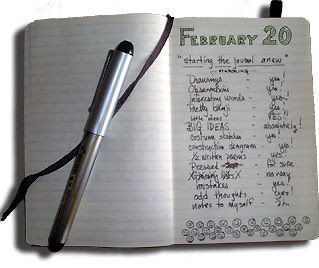 FEBRUARY 20
"starting the journal anew"
Drawings - yes!
Observations - yes!
Interesting words - yes!
Pretty kanji - yes!
little ideas - YES!!
BIG IDEAS - absolutely!
costume sketches - yes!
construction diagrams - yo!
1/2 written poems - yes
Pressed - for sure
X - no way
mistakes - yes!
odd thoughts - yes
notes to myself -